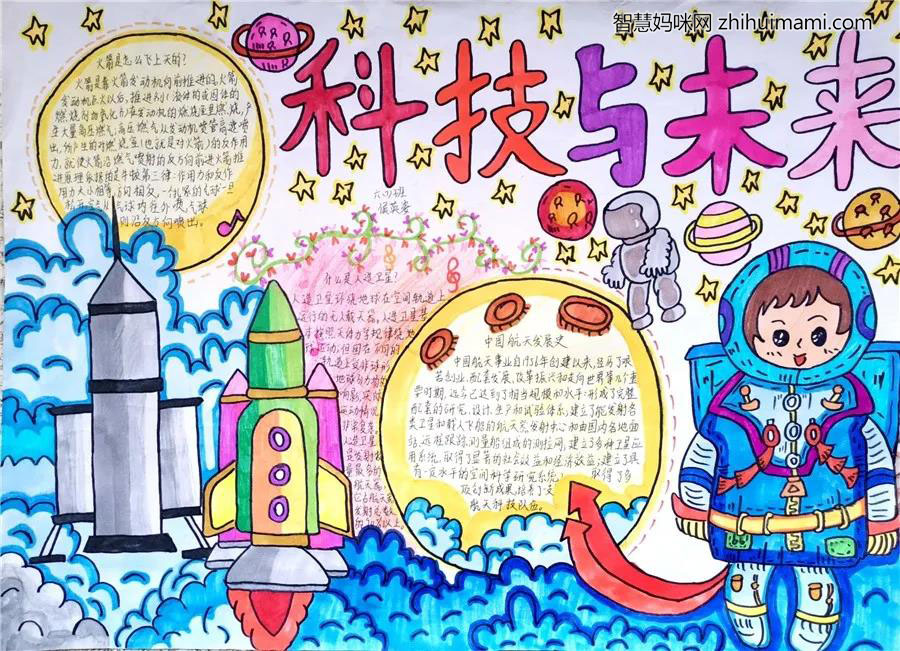 智慧妈咪网 zhihuimami.com
科技与未来
六四班
火箭是怎么飞上天的?
火箭是靠火箭发动机向前推进的。火箭
发动机点火以后,推进剂(液体的或固体的
燃烧剂加氧化剂)在发动机的燃烧室里燃烧,产
生大量高压燃气;高压燃气从发动机喷管高速喷
出,所产生的对燃烧室(也就是对火箭)的反作用
力,就使火箭沿燃气喷射的反方向前进火箭推
进原理依据的是牛顿第三律:作用力和反作
用力大小相等,方向相反。一个扎紧的气球一旦
球内空气往外喷气球
则沿反方向喷出。
什么是人造卫星?
人造卫星环绕地球在空间轨道上
运行的无人航天器。人造卫星基
本按照天体力学规律绕地
球运动,但因在不同的
轨道上受非球形
地球引力场
影响,
运动情况
非常复杂。
人造卫星
是发射数
量最多的
航天器,
它占航天器
发射总数
的90%以上。
中国航天发展史
中国航天事业自1956年创建以来,经历了艰
苦创业、配套发展、改革振兴和走向世界等几个重
要时期,迄今已达到了相当规模和水平:形成了完整
配套的研究、设计、生产和试验体系;建立了能发射各
类卫星和载人飞船的航天发射中心和由国内各地面
站、远程跟踪测量船组成的测控网;建立了多种卫星应
用系统,取得了显著的社会效益和经济效益;建立了具
有一定水平的空间科学研究系统,取得了多
项创新成果;培养了支
航天科技队伍。